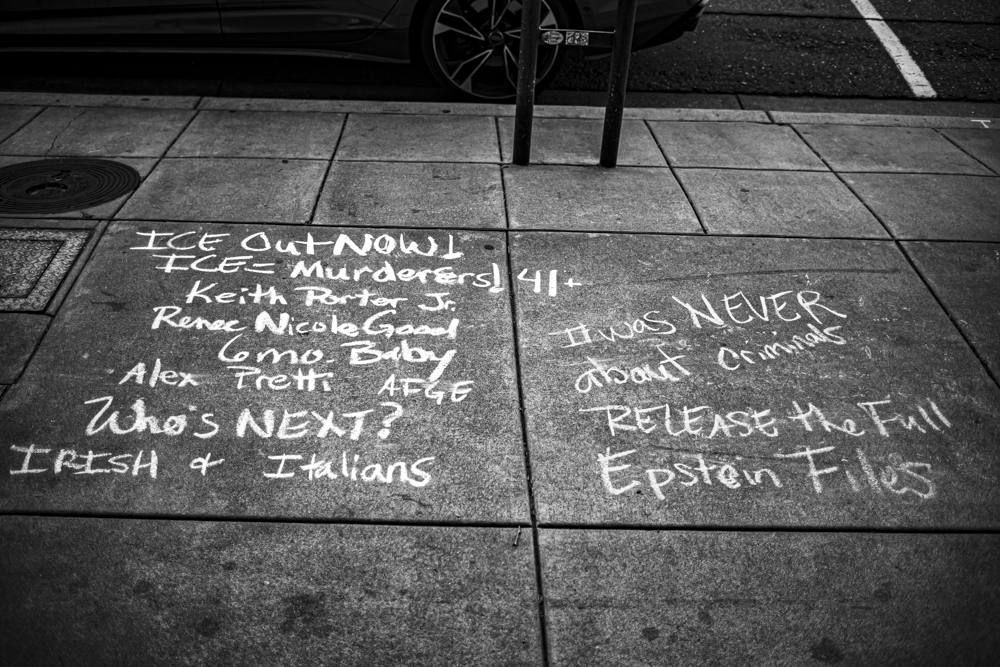 ICE Out NOW!
ICE = Murderers! 41+
Keith Porter Jr.
Renee Nicole Good
6mo. Baby
Alex Pretti AFGE
Who's NEXT?
IRISH & Italians
It was NEVER
about criminals
RELEASE the Full
Epstein Files